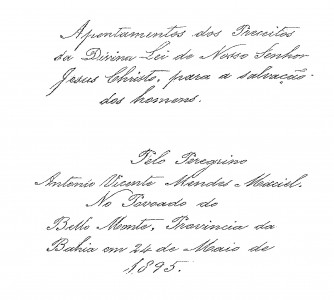 Apontamentos dos Preceitos
da Divina Lei de Nosso Senhor
Jesus Christo, para a salvação
dos homens.
Pelo Peregrino
Antonio Vicente Mendes Maciel.
No Povoado do
Bello Monte, Provincia da
Bahia em 24 de Maio de
1895.